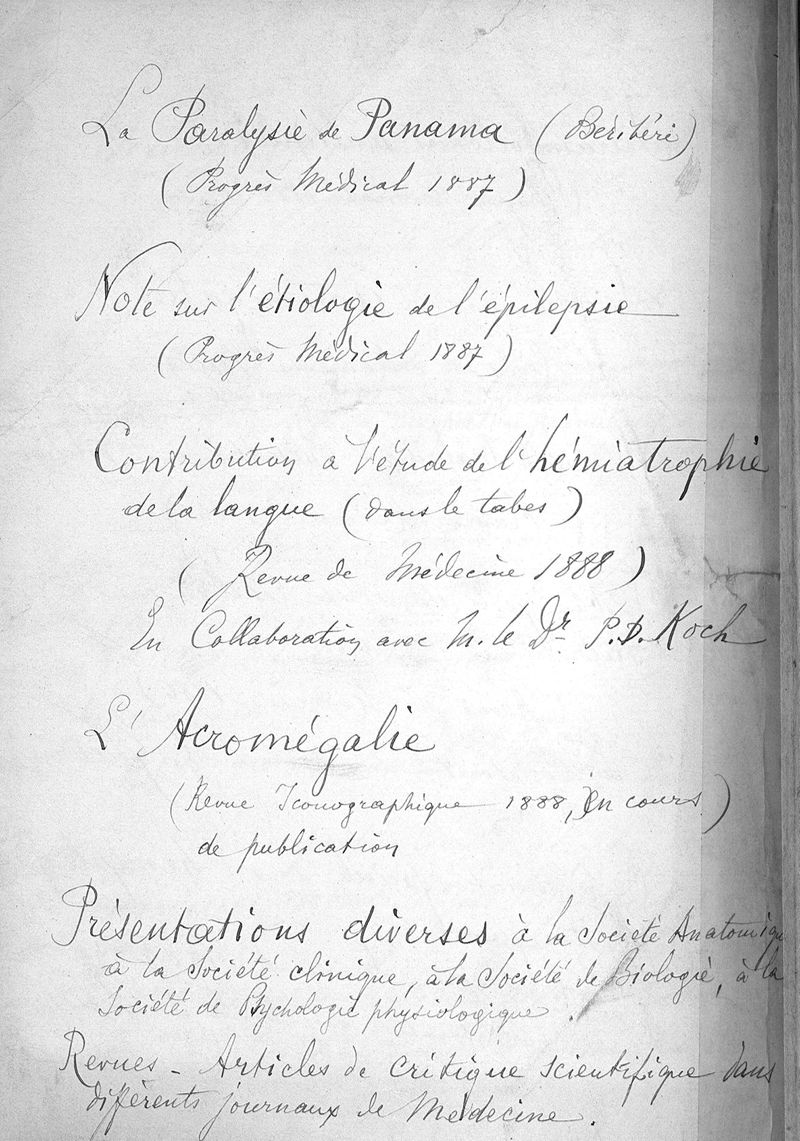 La Paralysie de Panama (Béribéri)
(Progrès Médical 1887)
Note sur l'étiologie de l'épilepsie
(Progrès Médical 1887)
Contribution à l'étude de l'hémiatrophie
de la langue (dans le tabes)
(Revue de Médecine 1888)
En Collaboration avec M. le Dr P.D. Koch
L'Acromégalie
(Revue Iconographique 1888, en cours)
de publication
Présentations diverses à la Société Anatomique
à la Société clinique, à la Société de Biologie, à la
Société de Psychologie physiologique.
Revues - Articles de critique scientifique dans
différents journaux de Médecine.